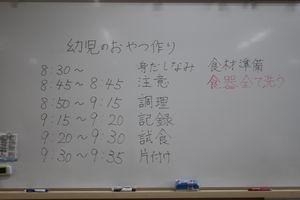 幼児のおやつ作り
8:30～ 身だしなみ 食材準備
8:45～8:45 注意 食器全て洗う
8:50～9:15 調理
9:15～9:20 記録
9:20～9:30 試食
9:30～9:35 片付け